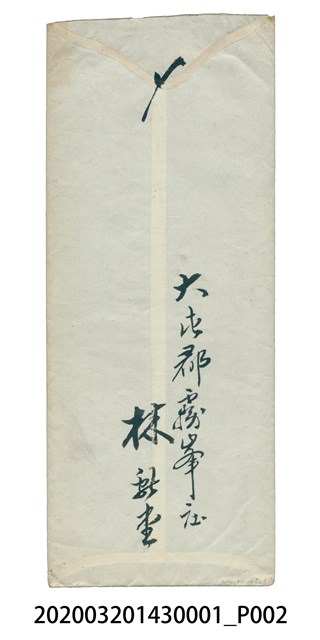 〆
大屯郡霧峯庄
林獻堂
202003201430001_P002